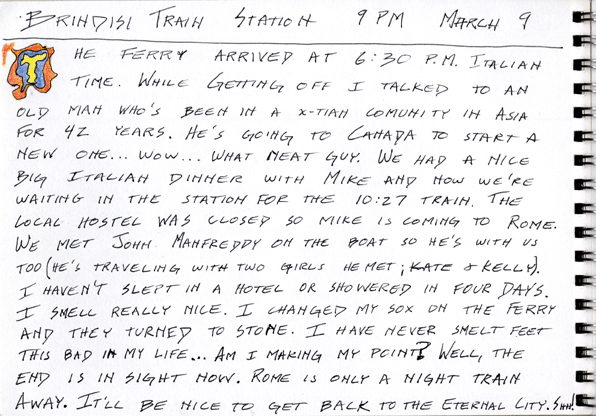 BRINDISI TRAIN STATION 9 PM MARCH 9
THE FERRY ARRIVED AT 6:30 P.M. ITALIAN
TIME. WHILE GETTING OFF I TALKED TO AN
OLD MAN WHO'S BEEN IN A X-TIAN COMUNITY IN ASIA
FOR 42 YEARS. HE'S GOING TO CANADA TO START A
NEW ONE... WOW... WHAT NEAT GUY. WE HAD A NICE
BIG ITALIAN DINNER WITH MIKE AND NOW WE'RE
WAITING IN THE STATION FOR THE 10:27 TRAIN. THE
LOCAL HOSTEL WAS CLOSED SO MIKE IS COMING TO ROME.
WE MET JOHN MANFREDDY ON THE BOAT SO HE'S WITH US
TOO (HE'S TRAVELING WITH TWO GIRLS HE MET; KATE & KELLY).
I HAVEN'T SLEPT IN A HOTEL OR SHOWERED IN FOUR DAYS.
I SMELL REALLY NICE. I CHANGED MY SOX ON THE FERRY
AND THEY TURNED TO STONE. I HAVE NEVER SMELT FEET
THIS BAD IN MY LIFE... AM I MAKING MY POINT? WELL, THE
END IS IN SIGHT NOW. ROME IS ONLY A NIGHT TRAIN
AWAY. IT'LL BE NICE TO GET BACK TO THE ETERNAL CITY.